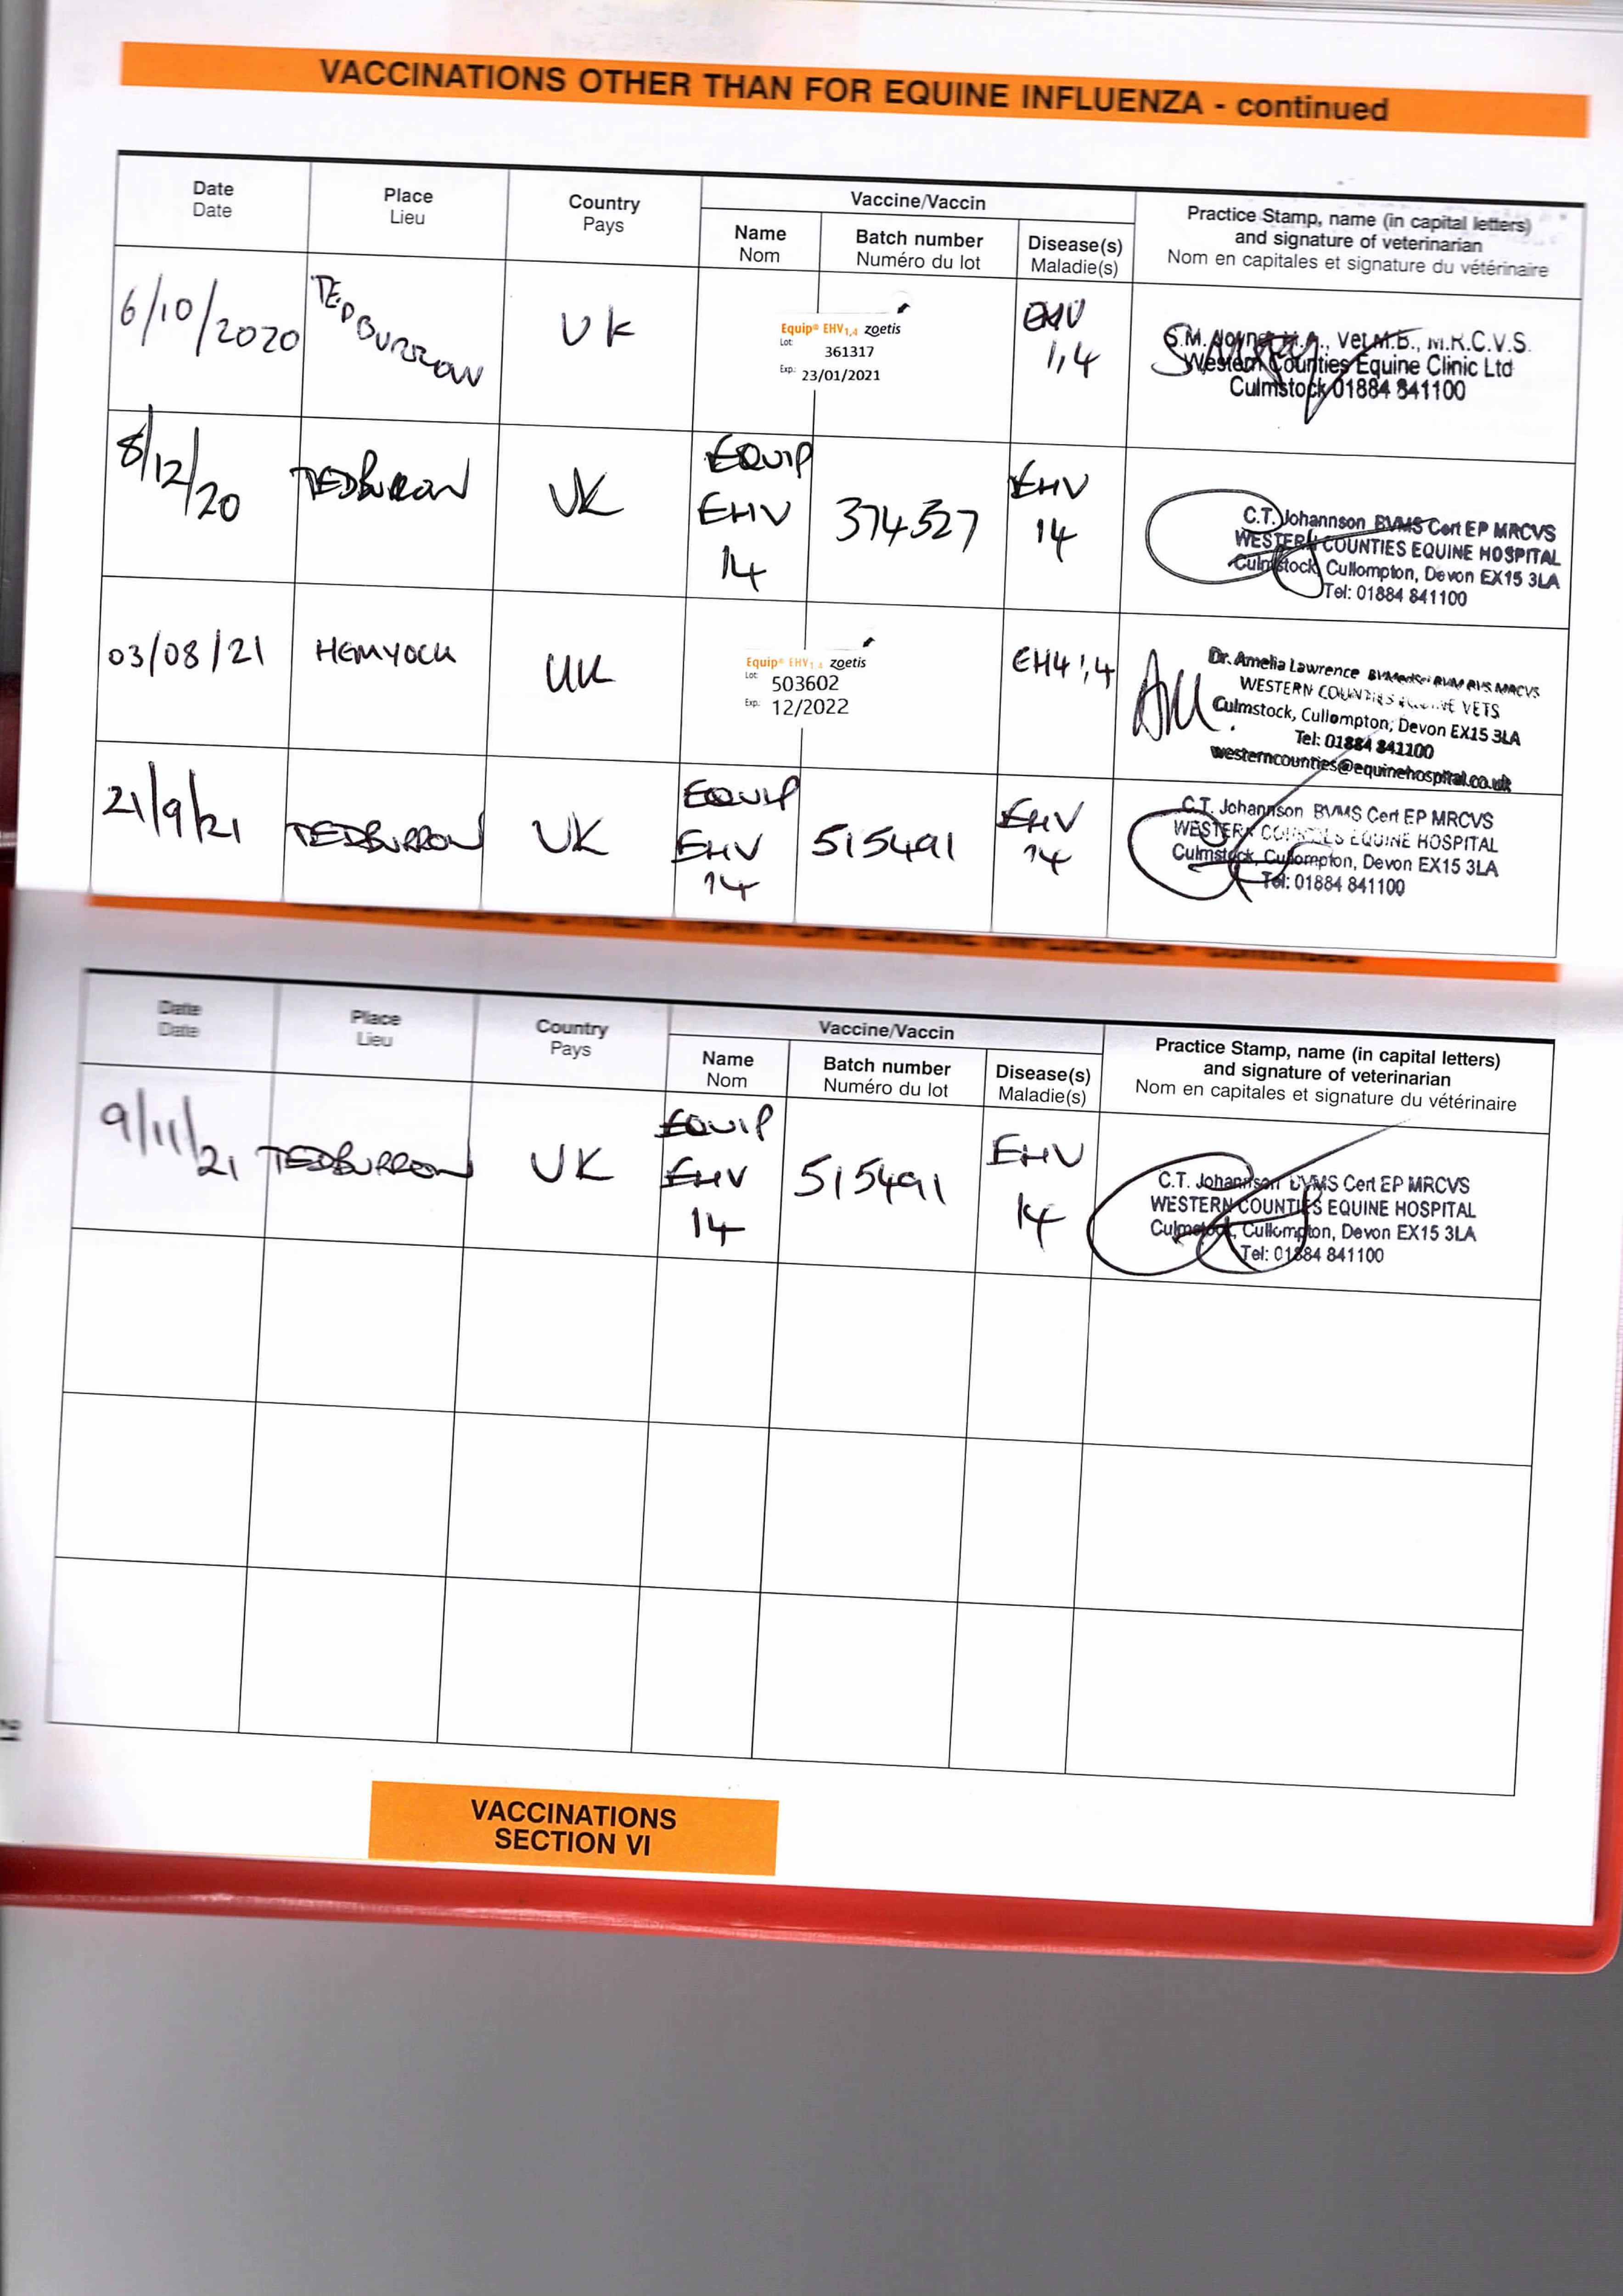 VACCINATIONS OTHER THAN FOR EQUINE INFLUENZA - continued
Date
Date
Place
Lieu
Country
Pays
Vaccine/Vaccin
Name
Nom
Batch number
Numéro du lot
Disease(s)
Maladie(s)
Practice Stamp, name (in capital letters)
and signature of veterinarian
Nom en capitales et signature du vétérinaire
6/10/2020
TEDBURROW
UK
Equip® EHV1,4 zoetis
Lot: 361317
Exp: 23/01/2021
EHV
1,4
S.M. Vet.M.B., M.R.C.V.S.
Western Counties Equine Clinic Ltd
Culmstock 01884 841100
8/12/20
TEDBURROW
UK
EQUIP
EHV
14
374527
EHV
14
C.T. Johannson BVMS Cert EP MRCVS
WESTERN COUNTIES EQUINE HOSPITAL
Culmstock, Cullompton, Devon EX15 3LA
Tel: 01884 841100
03/08/21
HEMYOCK
UK
Equip® EHV1,4 zoetis
Lot: 503602
Exp: 12/2022
EH4 1,4
Dr. Amelia Lawrence MRCVS
WESTERN COUNTIES EQUINE VETS
Culmstock, Cullompton, Devon EX15 3LA
Tel: 01884 841100
westerncounties@equinehospital.co.uk
21/9/21
TEDBURROW
UK
EQUIP
EHV
14
515491
EHV
14
C.T. Johannson BVMS Cert EP MRCVS
WESTERN COUNTIES EQUINE HOSPITAL
Culmstock, Cullompton, Devon EX15 3LA
Tel: 01884 841100
Date
Date
Place
Lieu
Country
Pays
Vaccine/Vaccin
Name
Nom
Batch number
Numéro du lot
Disease(s)
Maladie(s)
Practice Stamp, name (in capital letters)
and signature of veterinarian
Nom en capitales et signature du vétérinaire
9/11/21
TEDBURROW
UK
EQUIP
EHV
14
515491
EHV
14
C.T. Johannson BVMS Cert EP MRCVS
WESTERN COUNTIES EQUINE HOSPITAL
Culmstock, Cullompton, Devon EX15 3LA
Tel: 01884 841100
VACCINATIONS
SECTION VI